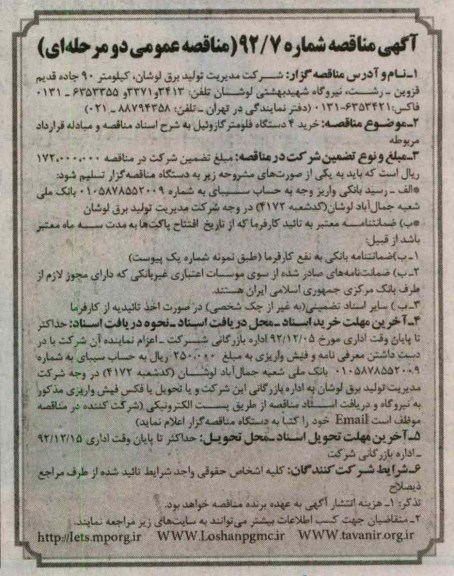 آگهی مناقصه شماره ۹۲/۷ (مناقصه عمومی دو مرحله‌ای)
۱ـ نام و آدرس مناقصه گزار: شرکت مدیریت تولید برق لوشان، کیلومتر ۹۰ جاده قدیم
قزوین ـ رشت، نیروگاه شهیدبهشتی لوشان تلفن: ۳۴۱۳و۳۳۷۱و ۶۳۵۳۳۵۵ ـ ۰۱۳۱
فاکس: ۶۳۵۳۴۲۱-۰۱۳۱ (دفتر نمایندگی در تهران ـ تلفن: ۸۸۷۹۴۳۵۸ ـ ۰۲۱)
۲ـ موضوع مناقصه: خرید ۴ دستگاه فلومتر گازوئیل به شرح اسناد مناقصه و مبادله قرارداد
مربوطه
۳ـ مبلغ و نوع تضمین شرکت در مناقصه: مبلغ تضمین شرکت در مناقصه ۱۷۲,۰۰۰,۰۰۰
ریال است که باید به یکی از صورت‌های مشروحه زیر به دستگاه مناقصه‌گزار تسلیم شود:
*الف ـ رسید بانکی واریز وجه به حساب سیبای به شماره ۰۱۰۵۸۷۸۵۵۲۰۰۹ بانک ملی
شعبه جمال‌آباد لوشان (کدشعبه ۴۱۷۲) در وجه شرکت مدیریت تولید برق لوشان
*ب) ضمانتنامه معتبر به تائید کارفرما که از تاریخ افتتاح پاکت‌ها به مدت سه ماه معتبر
باشد از قبیل:
۱ـ ب) ضمانتنامه بانکی به نفع کارفرما (طبق نمونه شماره یک پیوست)
۲ـ ب) ضمانت‌نامه‌های صادر شده از سوی موسسات اعتباری غیربانکی که دارای مجوز لازم از
طرف بانک مرکزی جمهوری اسلامی ایران هستند.
۳ـ ب) سایر اسناد تضمینی (به غیر از چک شخصی) در صورت اخذ تائیدیه از کارفرما
۴ـ آخرین مهلت خرید اسناد ـ محل دریافت اسناد ـ نحوه دریافت اسناد: حداکثر
تا پایان وقت اداری مورخ ۹۲/۱۲/۰۵ اداره بازرگانی شرکت ـ اعزام نماینده آن شرکت با در
دست داشتن معرفی نامه و فیش واریزی به مبلغ ۲۵۰,۰۰۰ ریال به حساب سیبای به شماره
۰۱۰۵۸۷۸۵۵۲۰۰۹ بانک ملی شعبه جمال‌آباد لوشان (کدشعبه ۴۱۷۲) در وجه شرکت
مدیریت تولید برق لوشان به اداره بازرگانی این شرکت و یا تحویل یا فکس فیش واریزی مذکور
به نیروگاه و دریافت اسناد مناقصه از طریق پست الکترونیکی (شرکت کننده در مناقصه
موظف است Email خود را کتباً به دستگاه مناقصه‌گزار اعلام نماید)
۵ـ آخرین مهلت تحویل اسناد ـ محل تحویل: حداکثر تا پایان وقت اداری ۹۲/۱۲/۱۵
ـ اداره بازرگانی شرکت
۶ـ شرایط شرکت کنندگان: کلیه اشخاص حقوقی واجد شرایط تائید شده از طرف مراجع
ذیصلاح
تذکر: ۱ـ هزینه انتشار آگهی به عهده برنده مناقصه خواهد بود.
۲ـ متقاضیان جهت کسب اطلاعات بیشتر می‌توانند به سایت‌های زیر مراجعه نمایند.
http://iets.mporg.ir WWW.Loshanpgmc.ir WWW.tavanir.org.ir